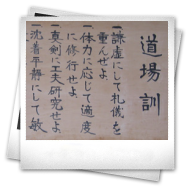 道場訓
一謙虚にして礼儀を
重んぜよ
一体力に応じて適度
に修行せよ
一真剣に工夫研究せよ
一沈着平静にして敏